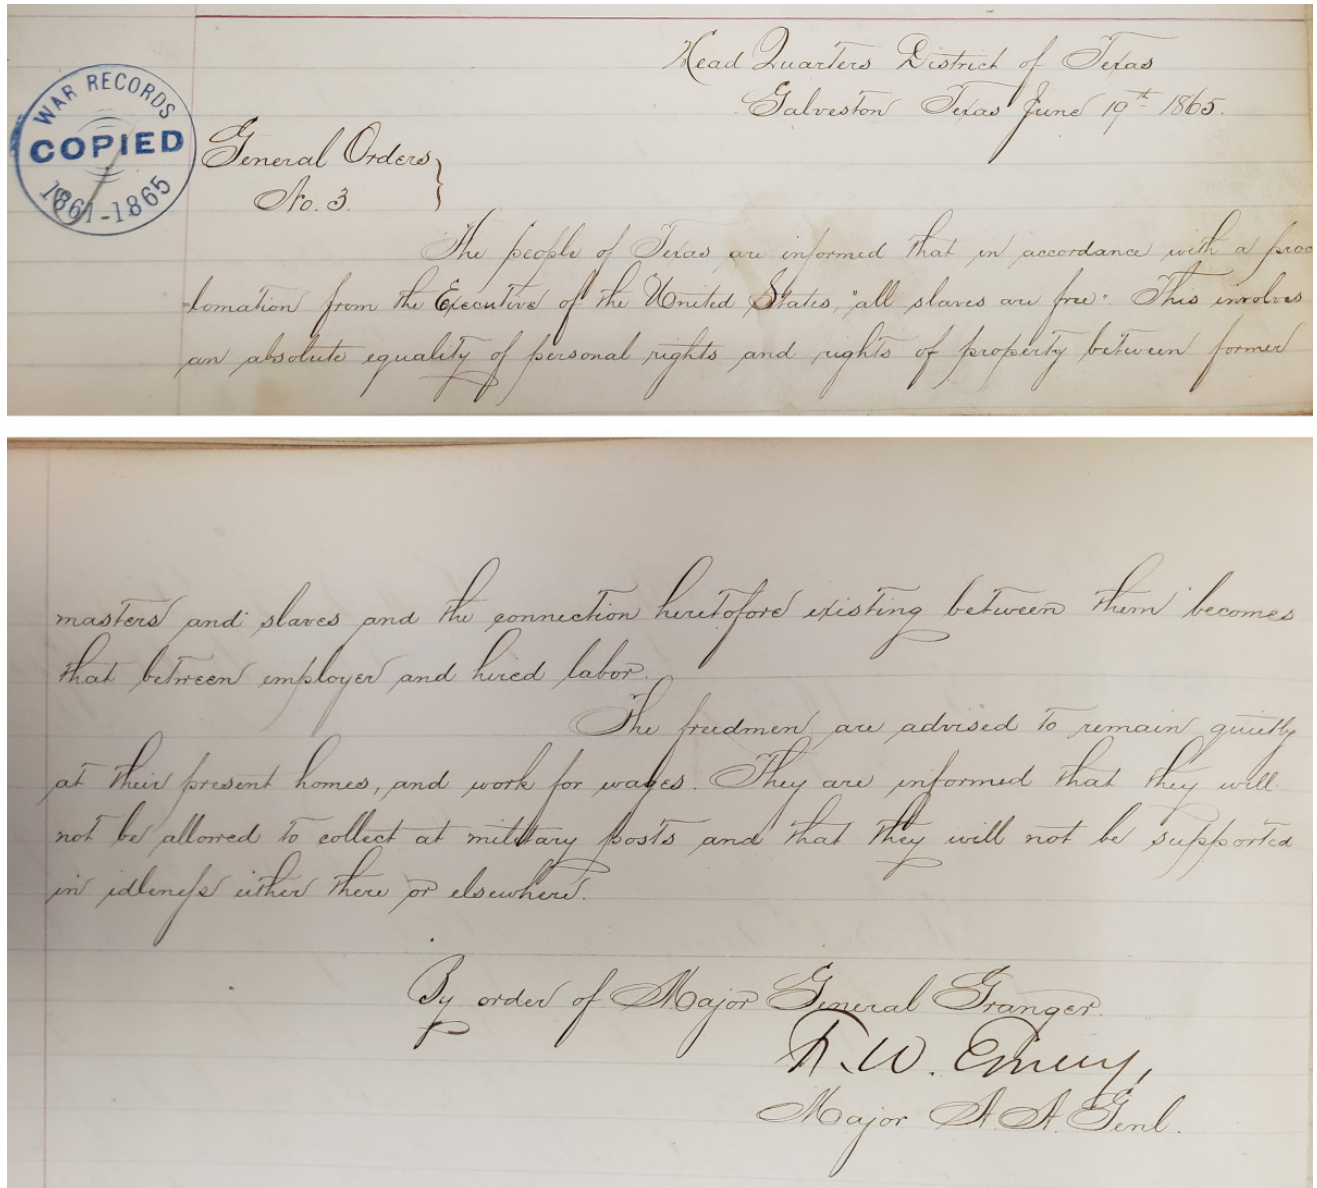 Head Quarters District of Texas
Galveston Texas June 19th 1865.
WAR RECORDS
COPIED
1861-1865
General Orders
No. 3.
The people of Texas are informed that in accordance with a proc
lamation from the Executive of the United States, "all slaves are free". This involves
an absolute equality of personal rights and rights of property between former
masters and slaves and the connection heretofore existing between them becomes
that between employer and hired labor.
The freedmen are advised to remain quietly
at their present homes, and work for wages. They are informed that they will
not be allowed to collect at military posts and that they will not be supported
in idleness either there or elsewhere.
By order of Major General Granger
F. W. Emery,
Major A. A. Genl.